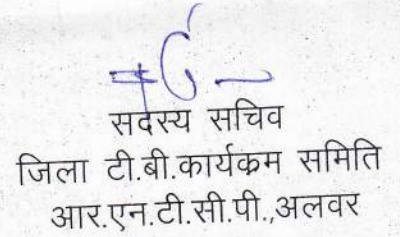 सदस्य सचिव
जिला टी.बी.कार्यक्रम समिति
आर.एन.टी.सी.पी.,अलवर